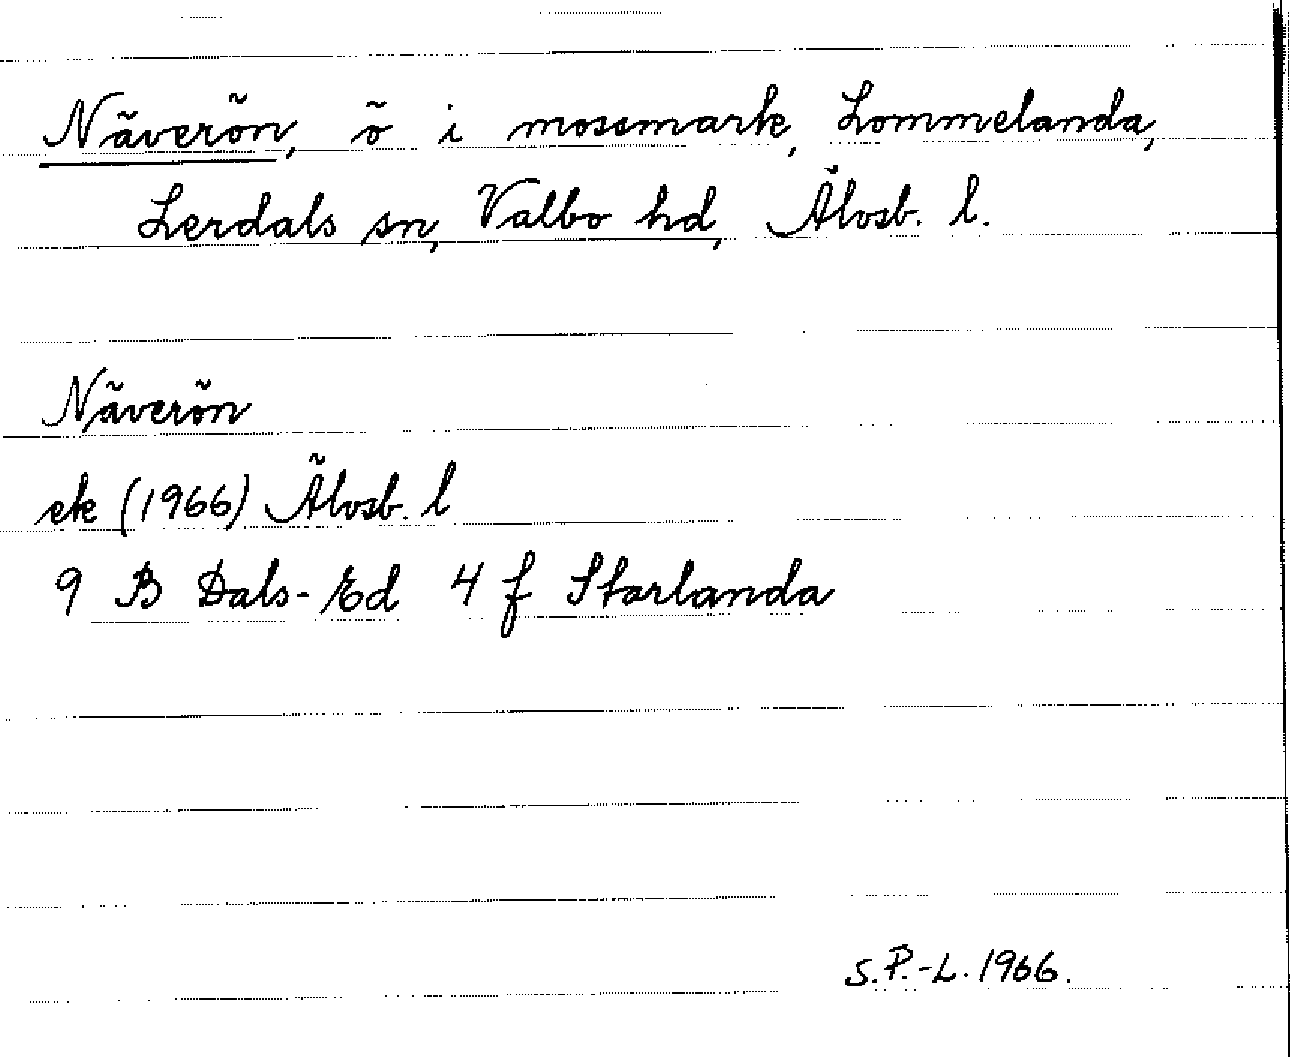 Näverön, ö i mossmark, Lommelanda,
Lerdals sn, Valbo hd, Älvsb. l.
Näverön
ek (1966) Älvsb. l
9 B Dals-Ed 4 f Starlanda
S.P.-L. 1966.